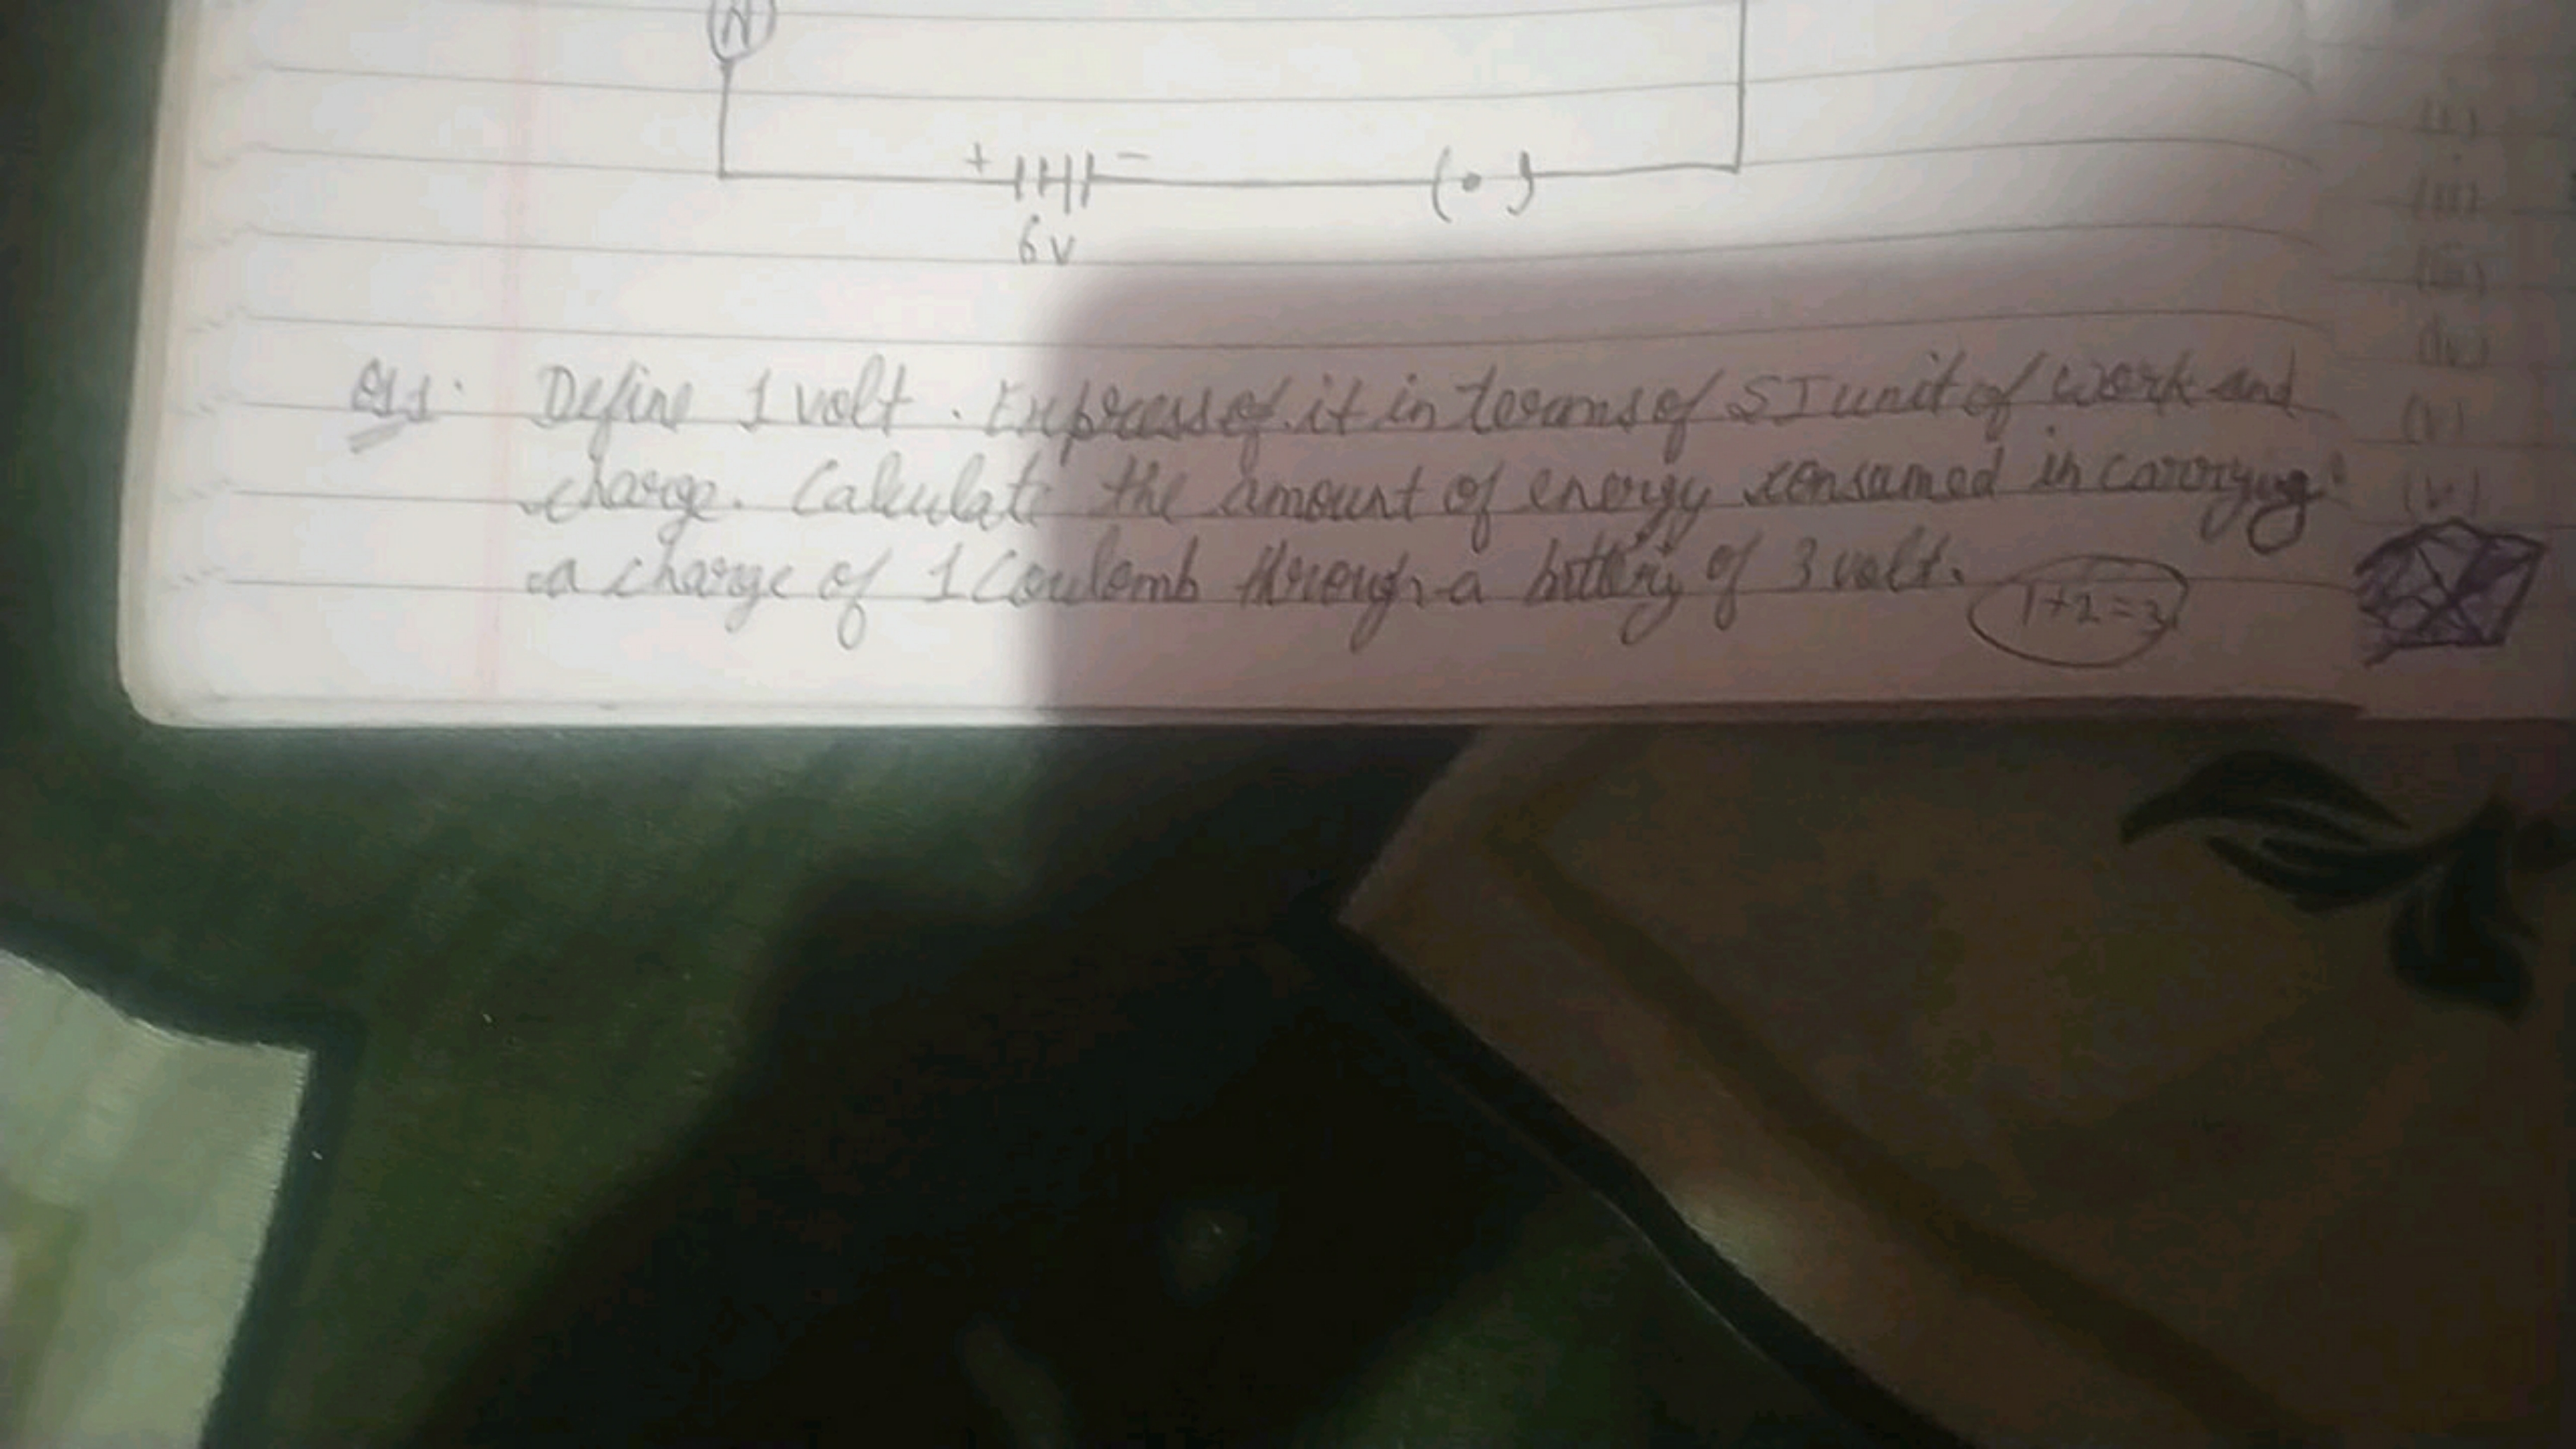 A
+ -
6v
Q11. Define 1 volt. Express of it in terms of SI unit of work and
charge. Calculate the amount of energy consumed in carrying
a charge of 1 Coulomb through a battery of 3 volt. 1+2=3
(i)
(ii)
(iii)
(iv)
(v)
(vi)